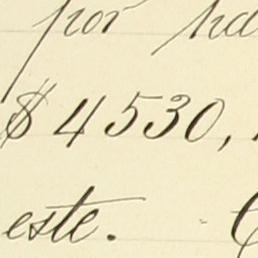 por ha
$4530,
este.